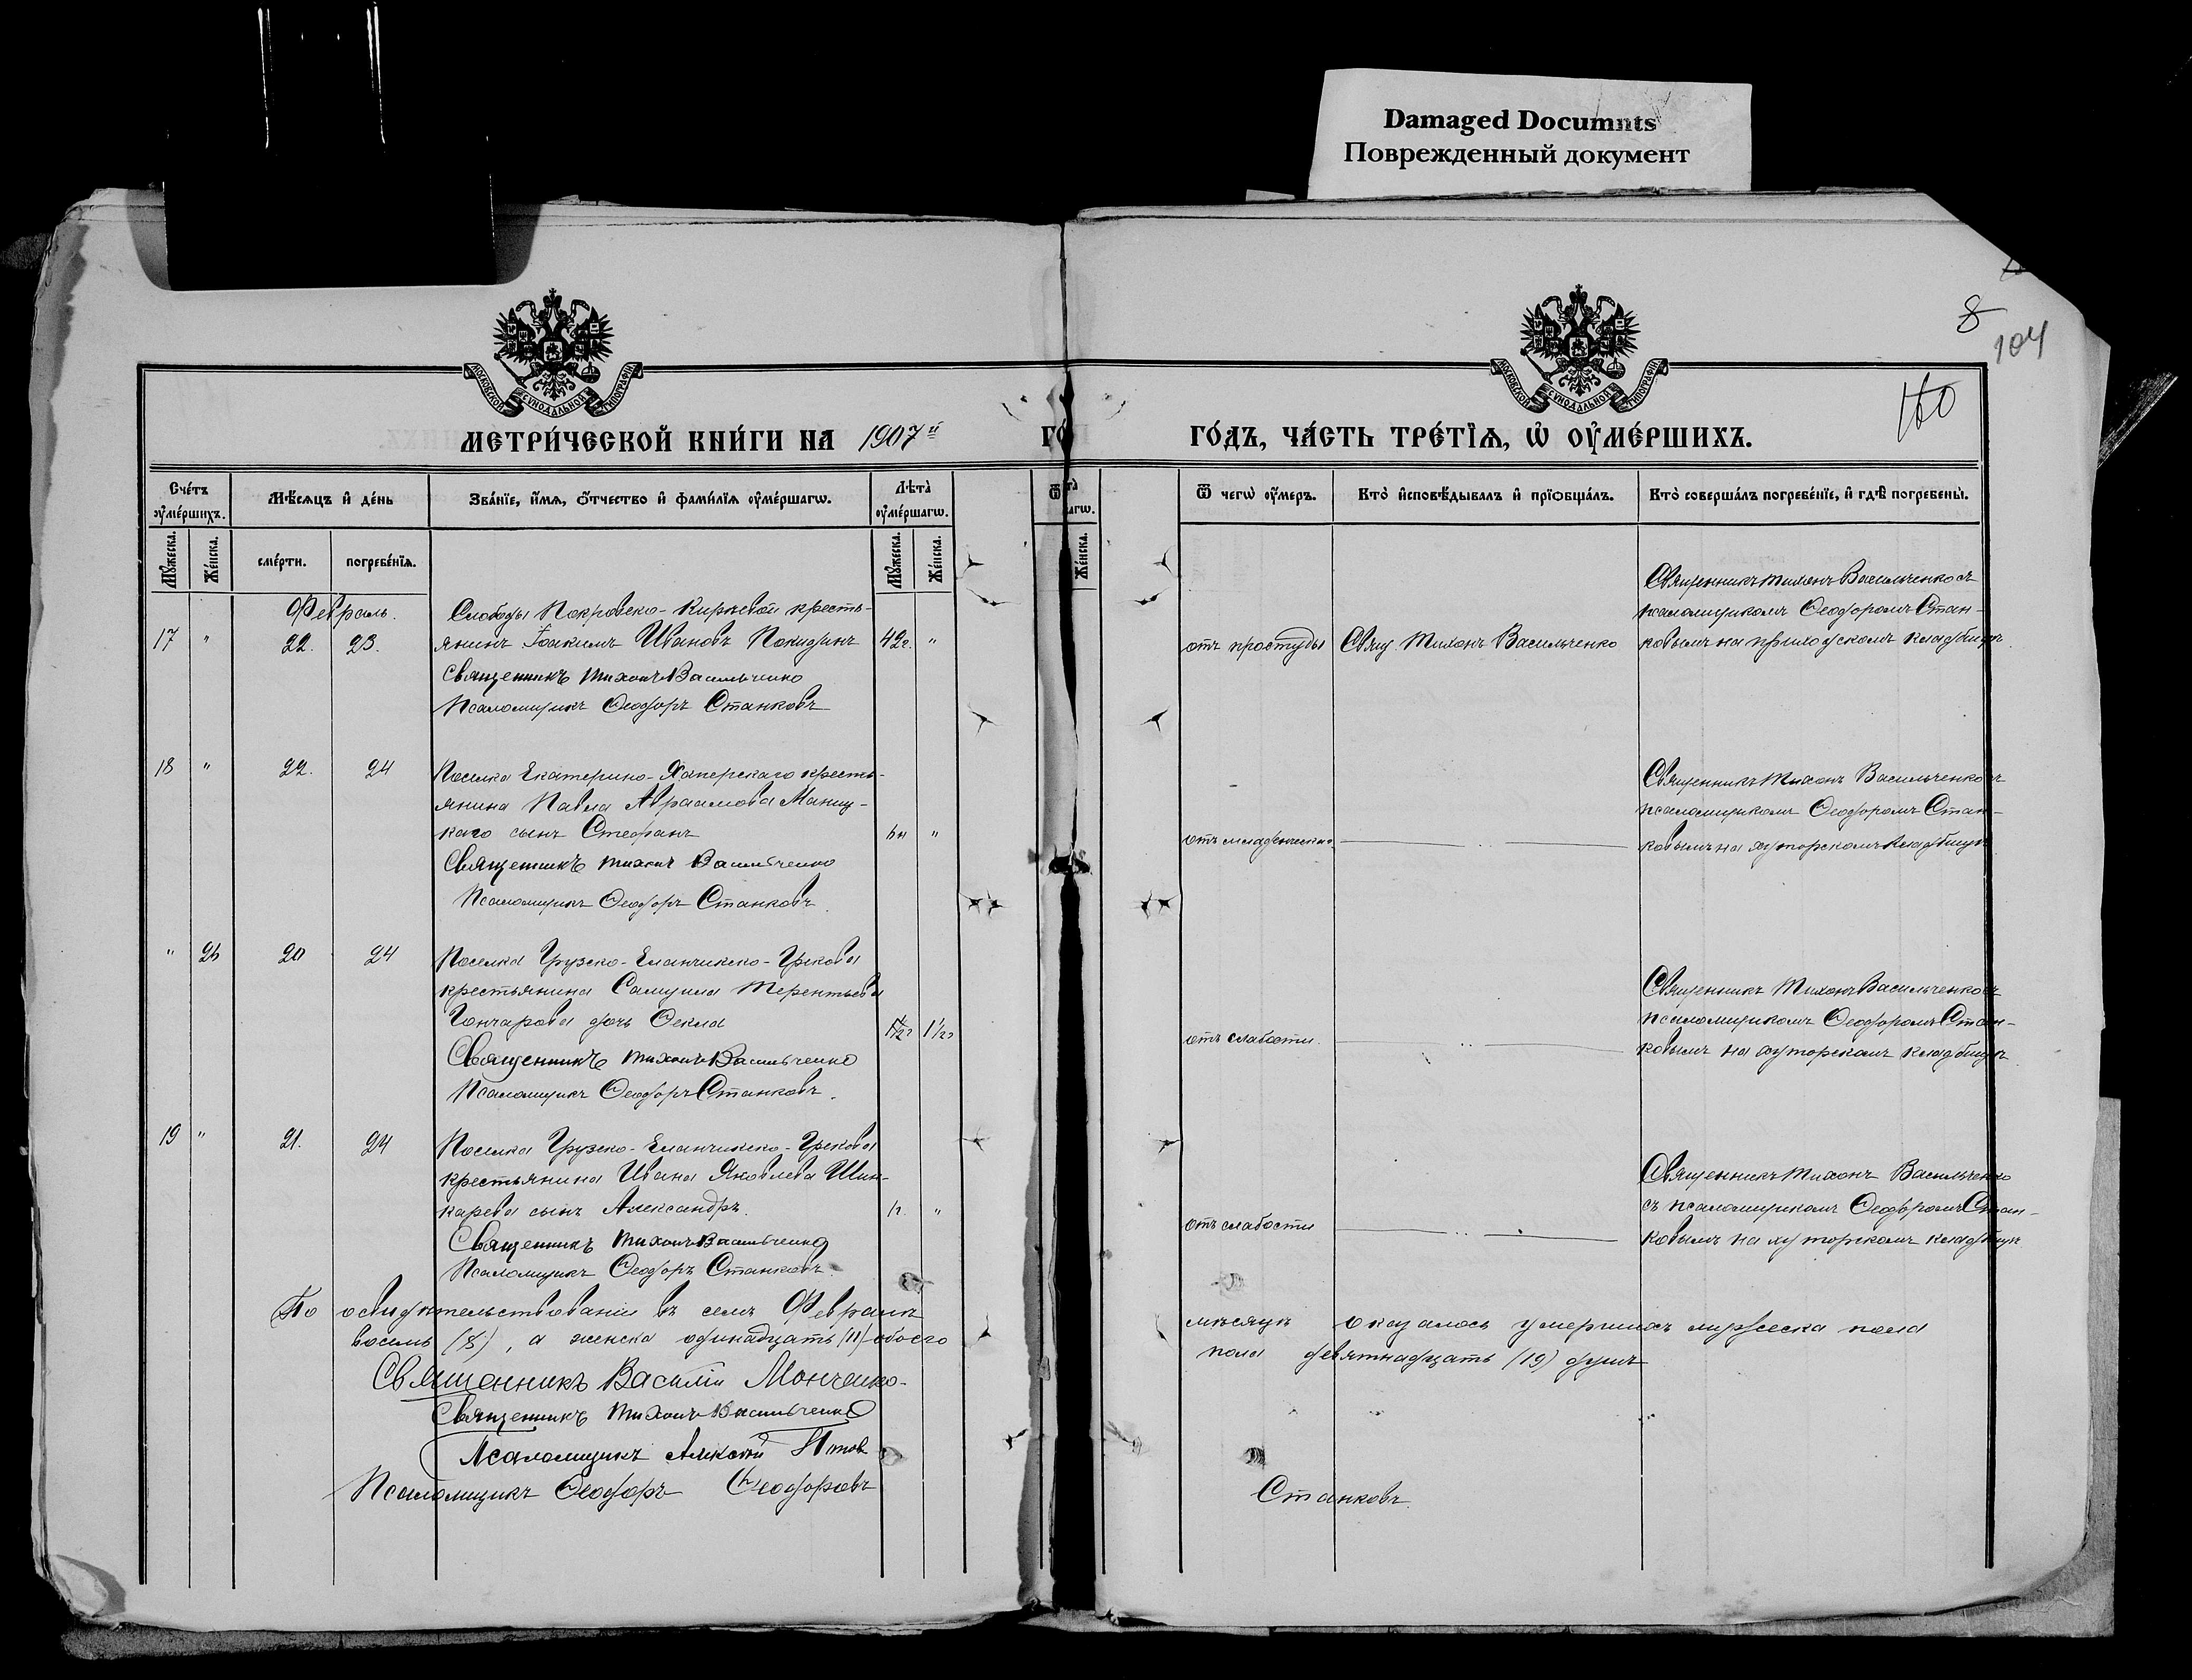 Damaged Documnts
Поврежденный документ
8
104
160
МОСКОВСКОЙ СѴНОДАЛЬНОЙ ТИПОГРАФІИ
МОСКОВСКОЙ СѴНОДАЛЬНОЙ ТИПОГРАФІИ
МЕТРИ́ЧЕСКОЙ КНИ́ГИ НА 1907й
ГО́ДЪ, ЧА́СТЬ ТРЕ́ТЇѦ, Ѡ҆ ОУ҆МЕ́РШИХЪ.
Сче́тъ оу҆ме́ршихъ.
Мѣ́сѧцъ и҆ де́нь
Зва́нїе, и҆́мѧ, ѻ҆́тчество и҆ фами́лїѧ оу҆ме́ршагѡ.
Лѣта̀ оу҆ме́ршагѡ.
Ѿ чегѡ̀ оу҆́меръ.
Кто̀ и҆сповѣ́дывалъ и҆ прїѡбща́лъ.
Кто̀ соверша́лъ погребе́нїе, и҆ гдѣ̀ погребены̀.
Мꙋ́жеска.
Же́нска.
сме́рти.
погребе́нїѧ.
Мꙋ́жеска.
Же́нска.
Же́нска.
Февраль.
Слободы Покровско-Кирѣевой кресть-
17 " 22. 23. янинъ Іоакимъ Ивановъ Покидинъ 42г. "
Священникъ Тихонъ Васильченко
Псаломщикъ Ѳеодоръ Станковъ
отъ простуды Свящ. Тихонъ Васильченко
Священникъ Тихонъ Васильченко съ
псаломщикомъ Ѳеодоромъ Стан-
ковымъ на приходскомъ кладбищѣ
18 " 22. 24 Поселка Екатерино-Хаперскаго кресть-
янина Павла Авраамова Маниц-
каго сынъ Стефанъ
Священникъ Тихонъ Васильченко
Псаломщикъ Ѳеодоръ Станковъ.
отъ младенческаго
Священникъ Тихонъ Васильченко съ
псаломщикомъ Ѳеодоромъ Стан-
ковымъ на хуторскомъ кладбищѣ
" 20 24 Поселка Грузско-Еланчикско-Грекова
крестьянина Самуила Терентьева
Гончарова дочь Ѳекла 1 1/2г
Священникъ Тихонъ Васильченко
Псаломщикъ Ѳеодоръ Станковъ.
отъ слабости.
Священникъ Тихонъ Васильченко съ
псаломщикомъ Ѳеодоромъ Стан-
ковымъ на хуторскомъ кладбищѣ
19 " 21. 24 Поселка Грузско-Еланчикско-Грекова
крестьянина Ивана Яковлева Шин-
карева сынъ Александръ. "
Священникъ Тихонъ Васильченко
Псаломщикъ Ѳеодоръ Станковъ.
отъ слабости
Священникъ Тихонъ Васильченко
съ псаломщикомъ Ѳеодоромъ Стан-
ковымъ на хуторскомъ кладбищѣ
По освидѣтельствованіи въ семъ Февралѣ мѣсяцѣ оказалось умершихъ мужеска пола
восемь (8), а женска одинадцать (11) обоего пола девятнадцать (19) душъ
Священникъ Василій Мончанко
Священникъ Тихонъ Васильченко
Псаломщикъ Алексѣй
Псаломщикъ Ѳеодоръ Ѳеодоровъ Станковъ.